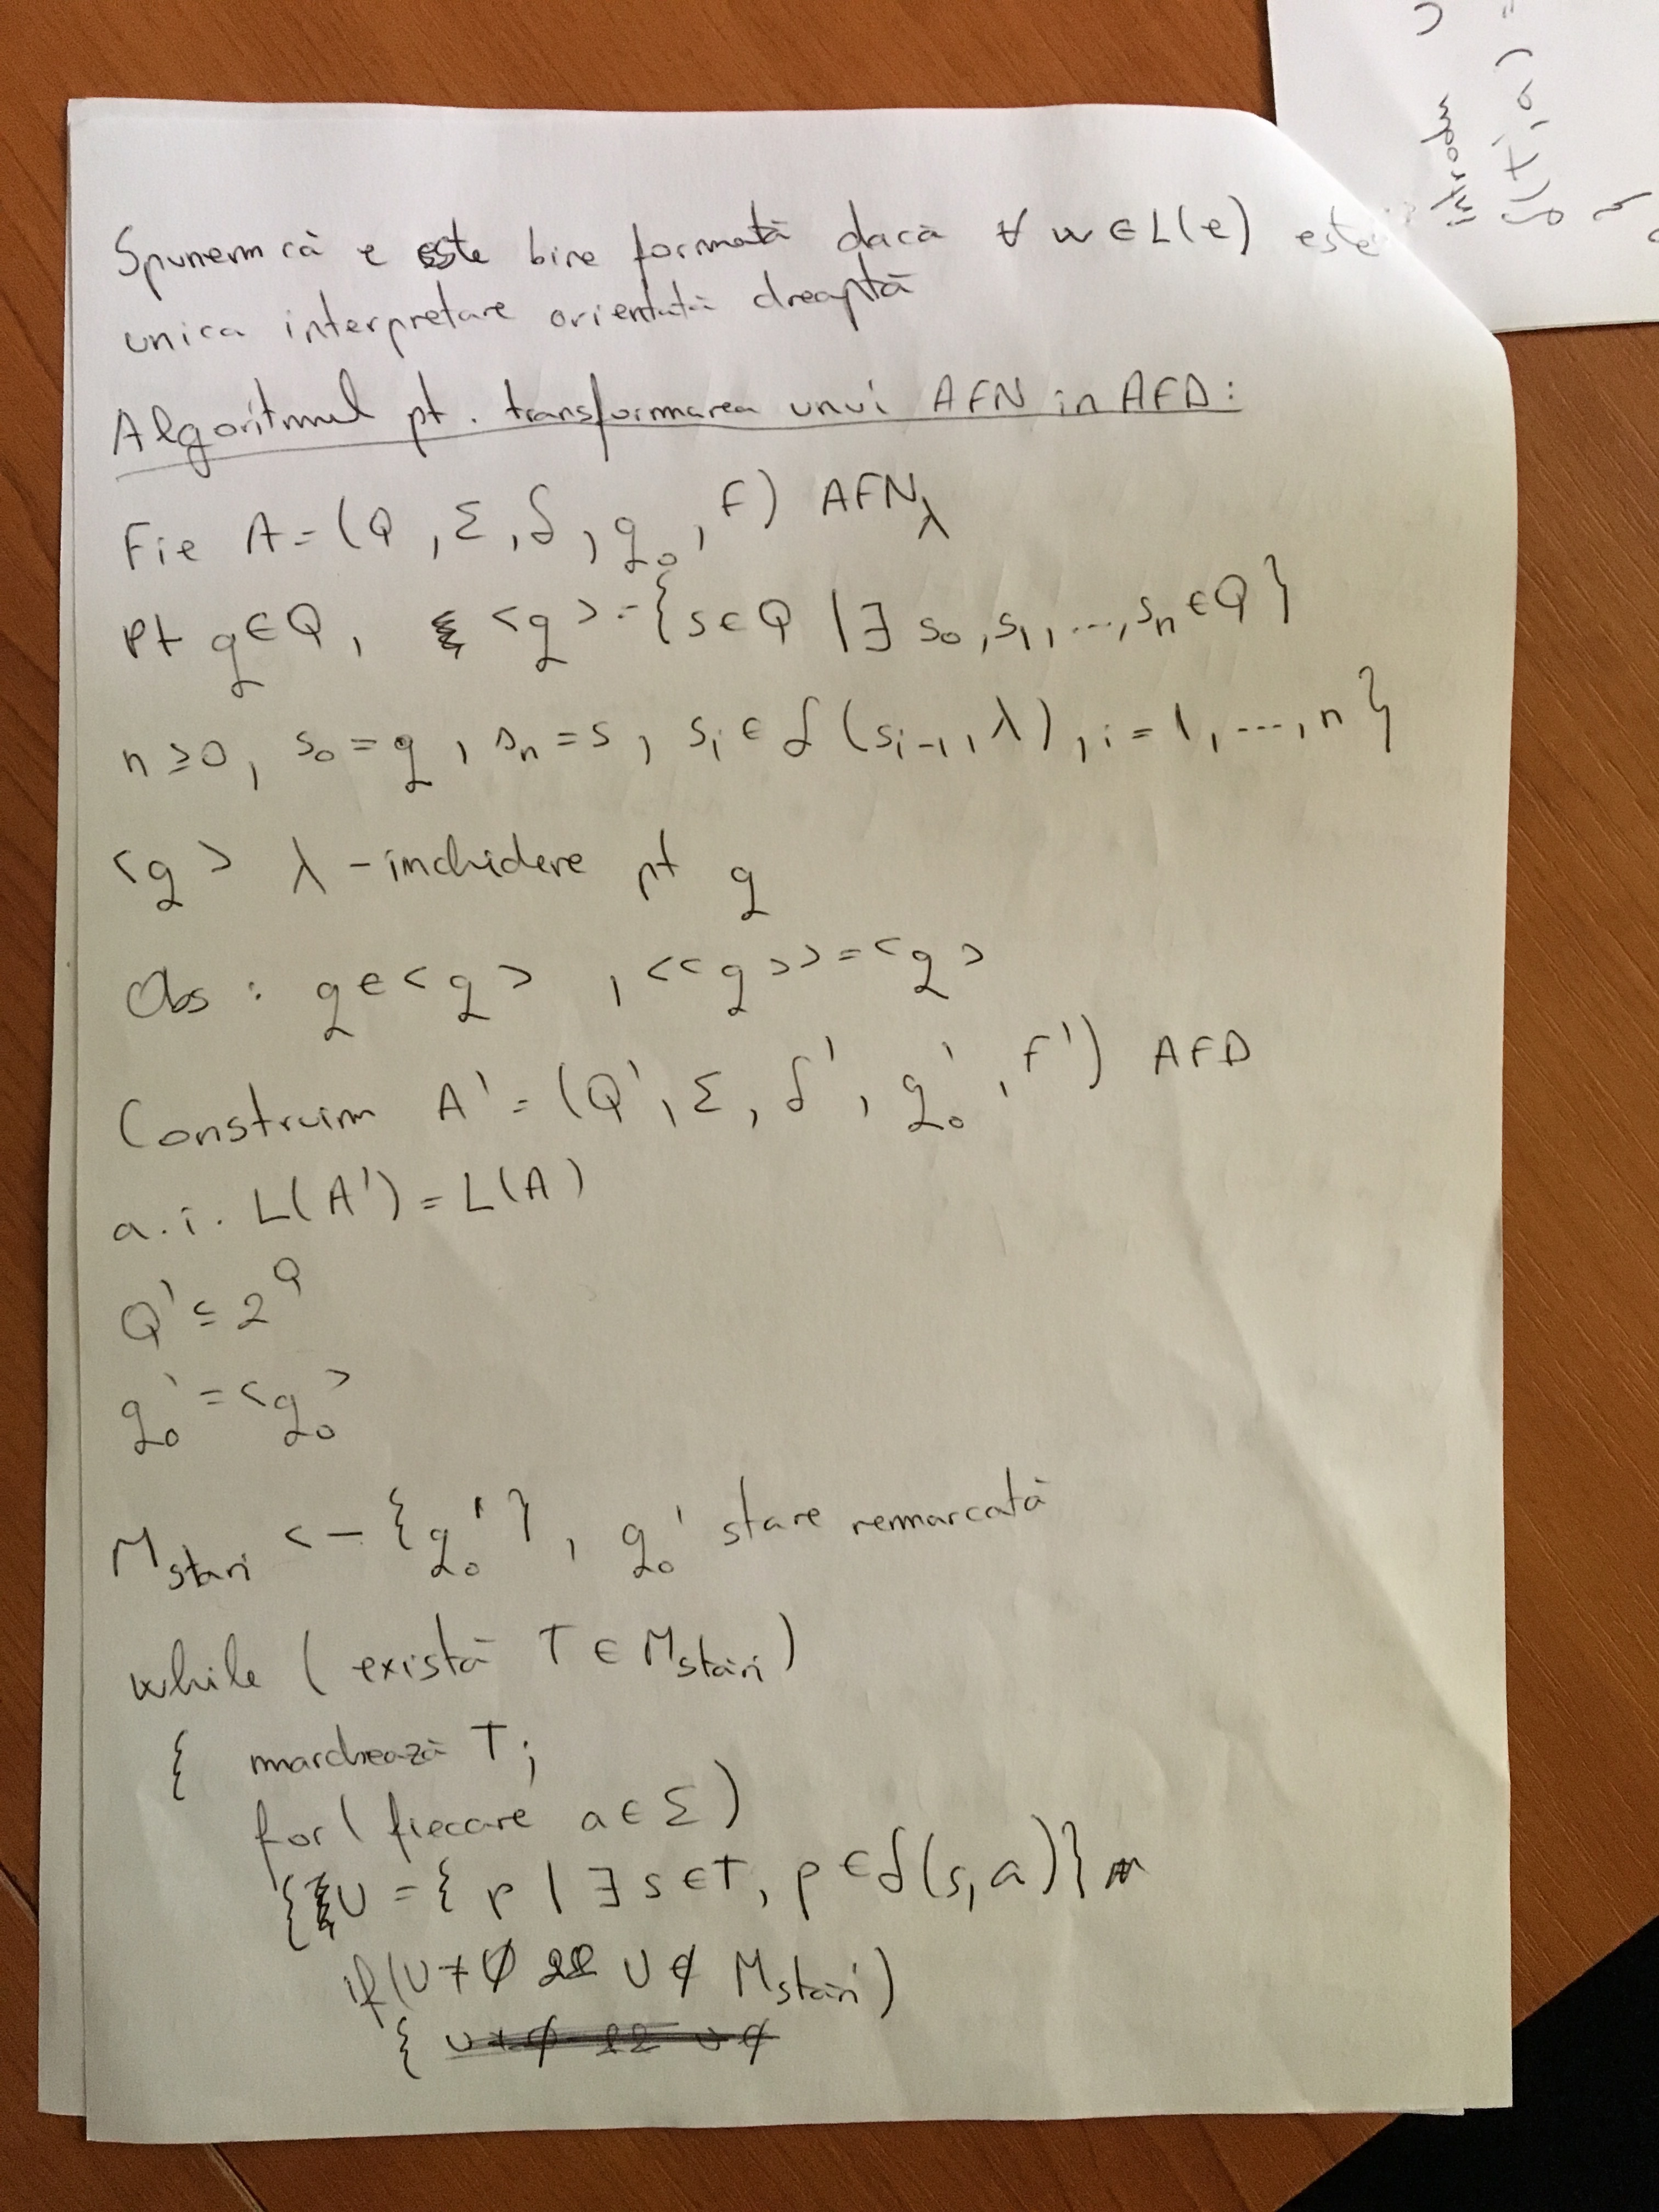 Spunem că e este bine formată dacă ∀ w ∈ L(e) este
unica interpretare orientată dreaptă
Algoritmul pt. transformarea unui AFN in AFD:
Fie A = (Q, Σ, δ, q₀, F) AFN_λ
Pt q ∈ Q, <q> = {s ∈ Q | ∃ s₀, s₁, ..., sₙ ∈ Q}
n ≥ 0, s₀ = q, sₙ = s, sᵢ ∈ δ(sᵢ₋₁, λ), i = 1, ..., n}
<q> λ-inchidere pt q
Obs: q ∈ <q>, <<q>> = <q>
Construim A' = (Q', Σ, δ', q₀', F') AFD
a.i. L(A') = L(A)
Q' ⊆ 2^Q
q₀' = <q₀>
M_stari <- {q₀'}, q₀' stare nemarcată
while (există T ∈ M_stări)
{ marchează T;
for (fiecare a ∈ Σ)
{ U = {p | ∃ s ∈ T, p ∈ δ(s, a)}
if (U ≠ ∅ && U ∉ M_stări)
{
introdu
δ(t, a) =